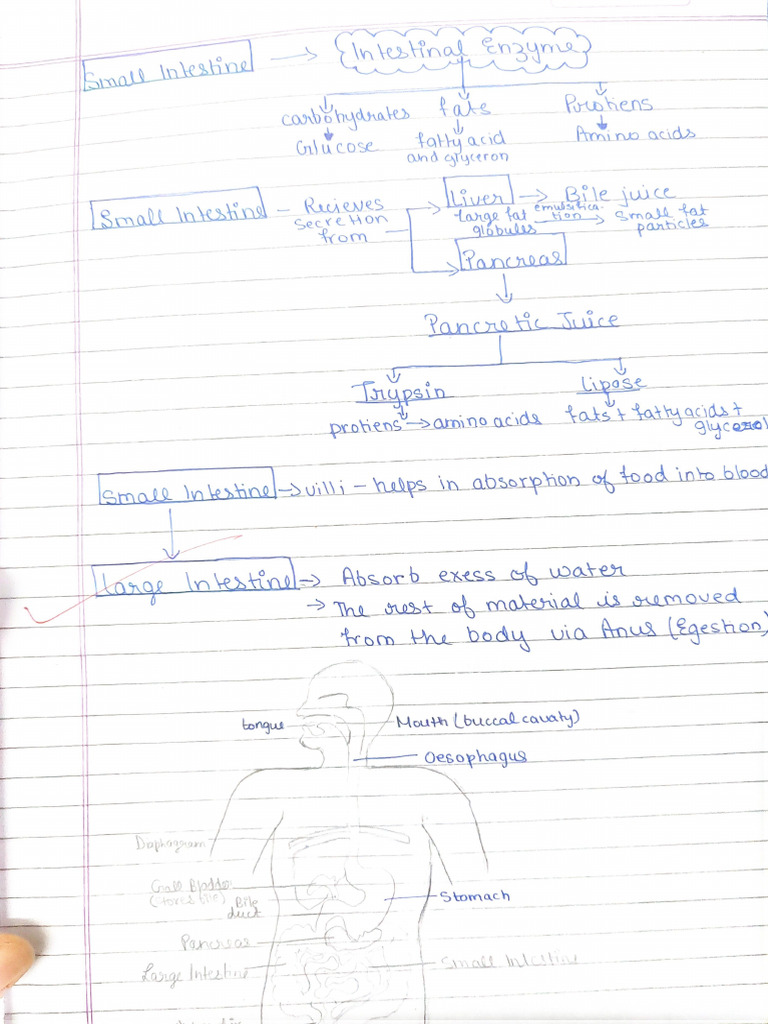 Small Intestine → Intestinal Enzyme
carbohydrates fats Protiens
Glucose fatty acid Amino acids
and glyceron
Small Intestine - Recieves Liver → Bile juice
secretion large fat emulsifica- Small fat
from globules tion → particles
Pancreas
Pancretic Juice
Trypsin Lipose
protiens → amino acids fats + fatty acids +
glycerol
Small Intestine → villi - helps in absorption of food into blood
Large Intestine → Absorb exess of water
→ The rest of material is removed
from the body via Anus (Egestion)
tongue Mouth (buccal cavaty)
Oesophagus
Diaphagram
Gall Bladder
(stores bile) Bile Stomach
duct
Pancreas
Large Intestine Small Intestine